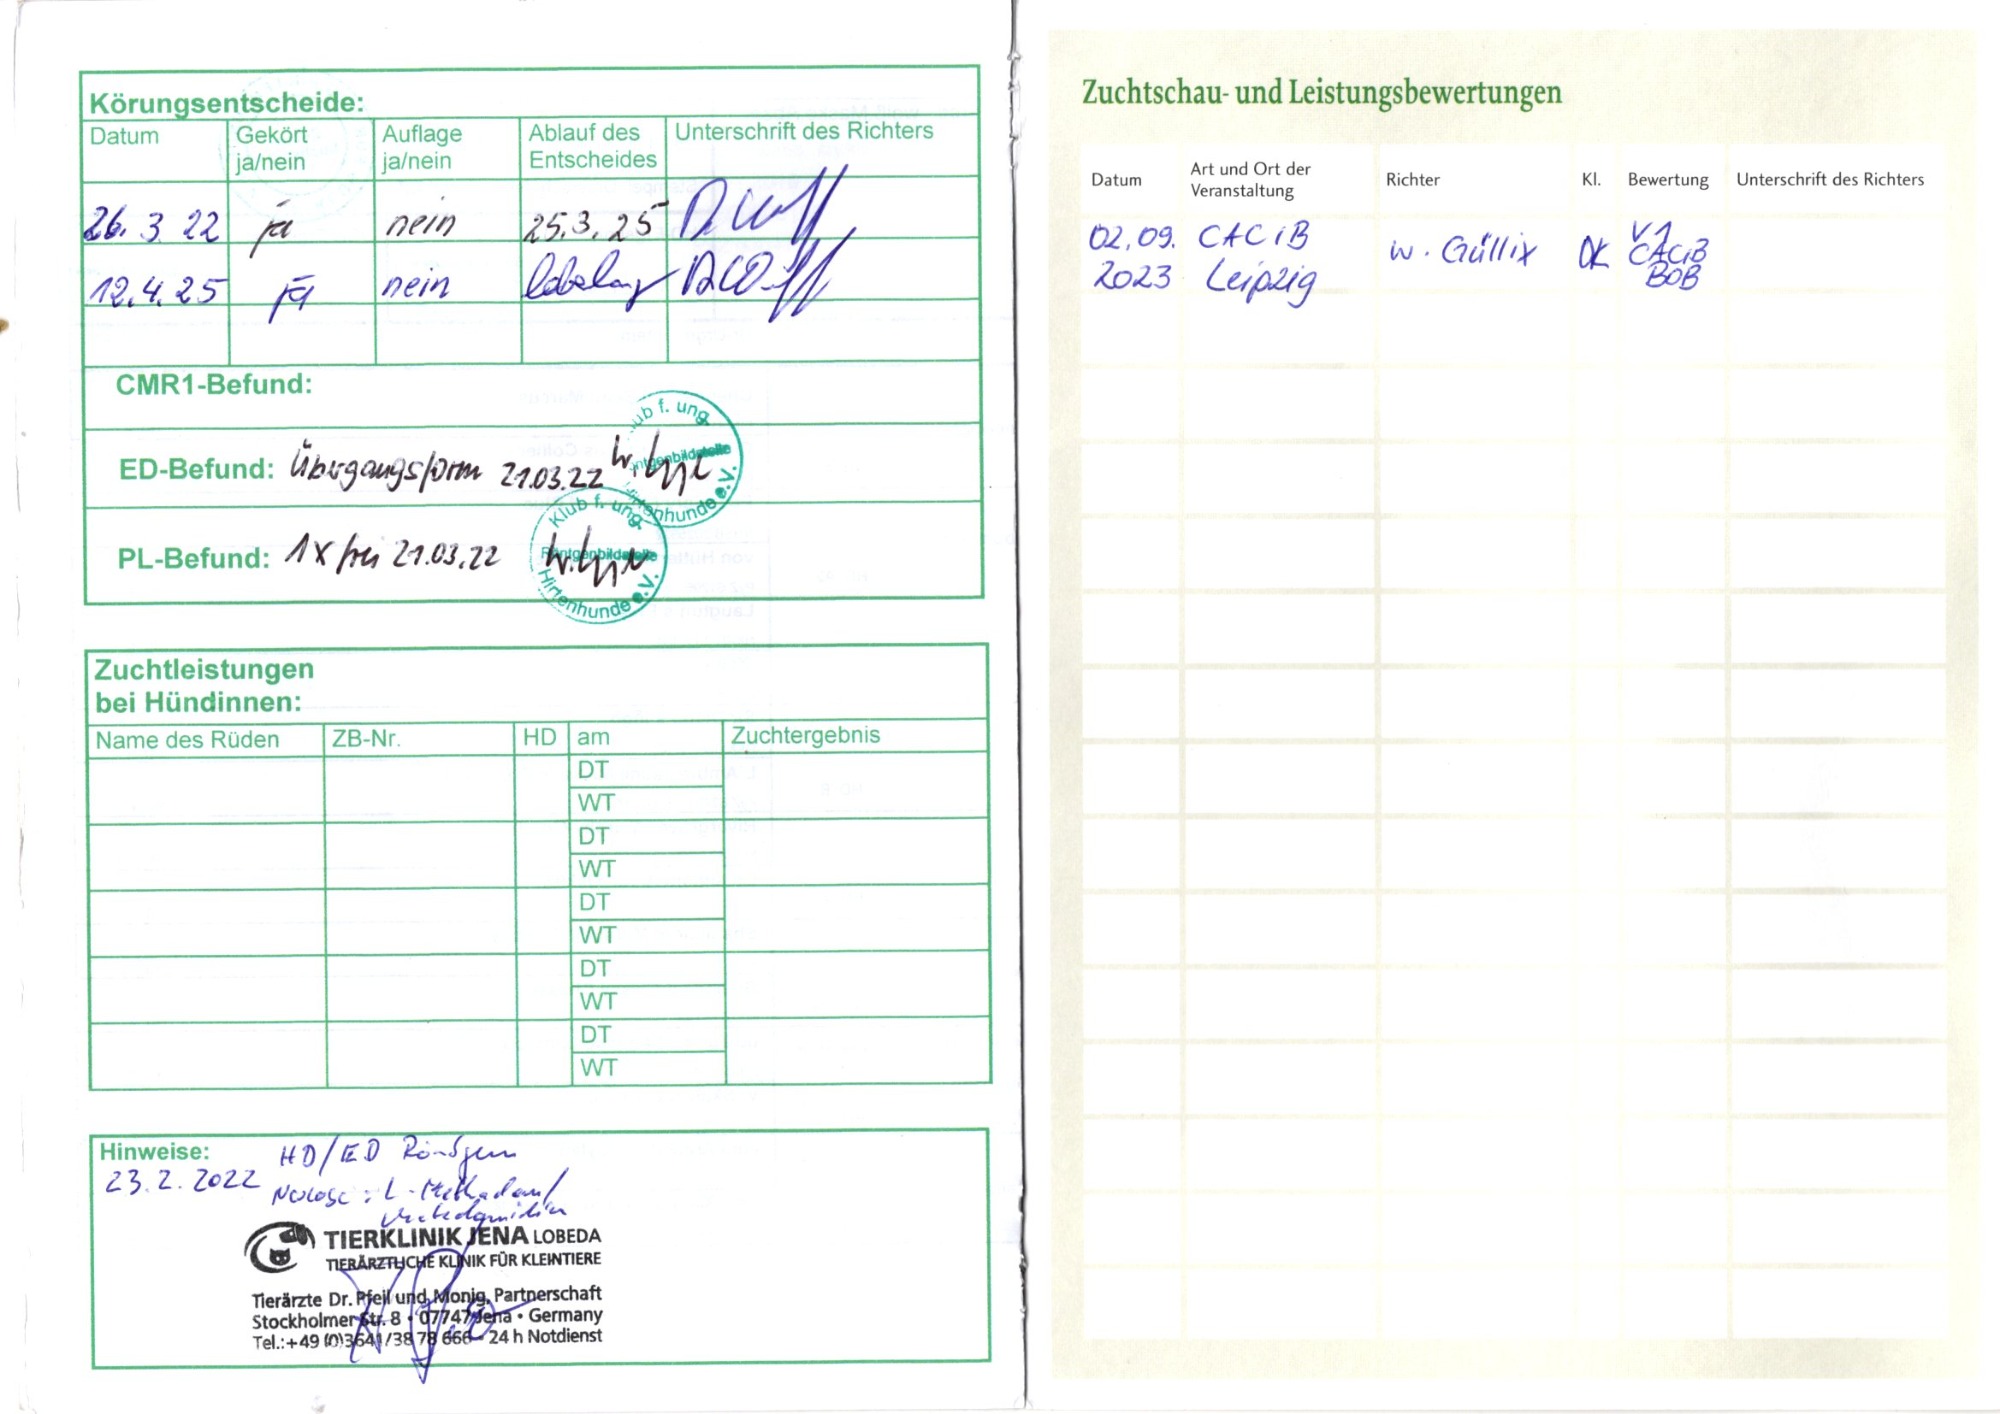 Körungsentscheide:
Datum Gekört ja/nein Auflage ja/nein Ablauf des Entscheides Unterschrift des Richters
26. 3. 22 ja nein 25.3.25
12.4.25 ja nein lebelang
CMR1-Befund:
ED-Befund: Übergangsform 21.03.22
Klub f. ung. Hirtenhunde e.V. Röntgenbildstelle
PL-Befund: 1x frei 21.03.22
Klub f. ung. Hirtenhunde e.V. Röntgenbildstelle
Zuchtleistungen
bei Hündinnen:
Name des Rüden ZB-Nr. HD am Zuchtergebnis
DT
WT
DT
WT
DT
WT
DT
WT
DT
WT
Hinweise: HD/ED Röntgen
23.2.2022 Narkose: L-Methadon/
TIERKLINIK JENA LOBEDA
TIERÄRZTLICHE KLINIK FÜR KLEINTIERE
Tierärzte Dr. Pfeil und Monig, Partnerschaft
Stockholmer Str. 8 • 07747 Jena • Germany
Tel.:+49 (0)3641/38 78 666 – 24 h Notdienst
Zuchtschau- und Leistungsbewertungen
Datum Art und Ort der Veranstaltung Richter Kl. Bewertung Unterschrift des Richters
02.09. CACiB w. Güllix OK V1 CACiB
2023 Leipzig BOB